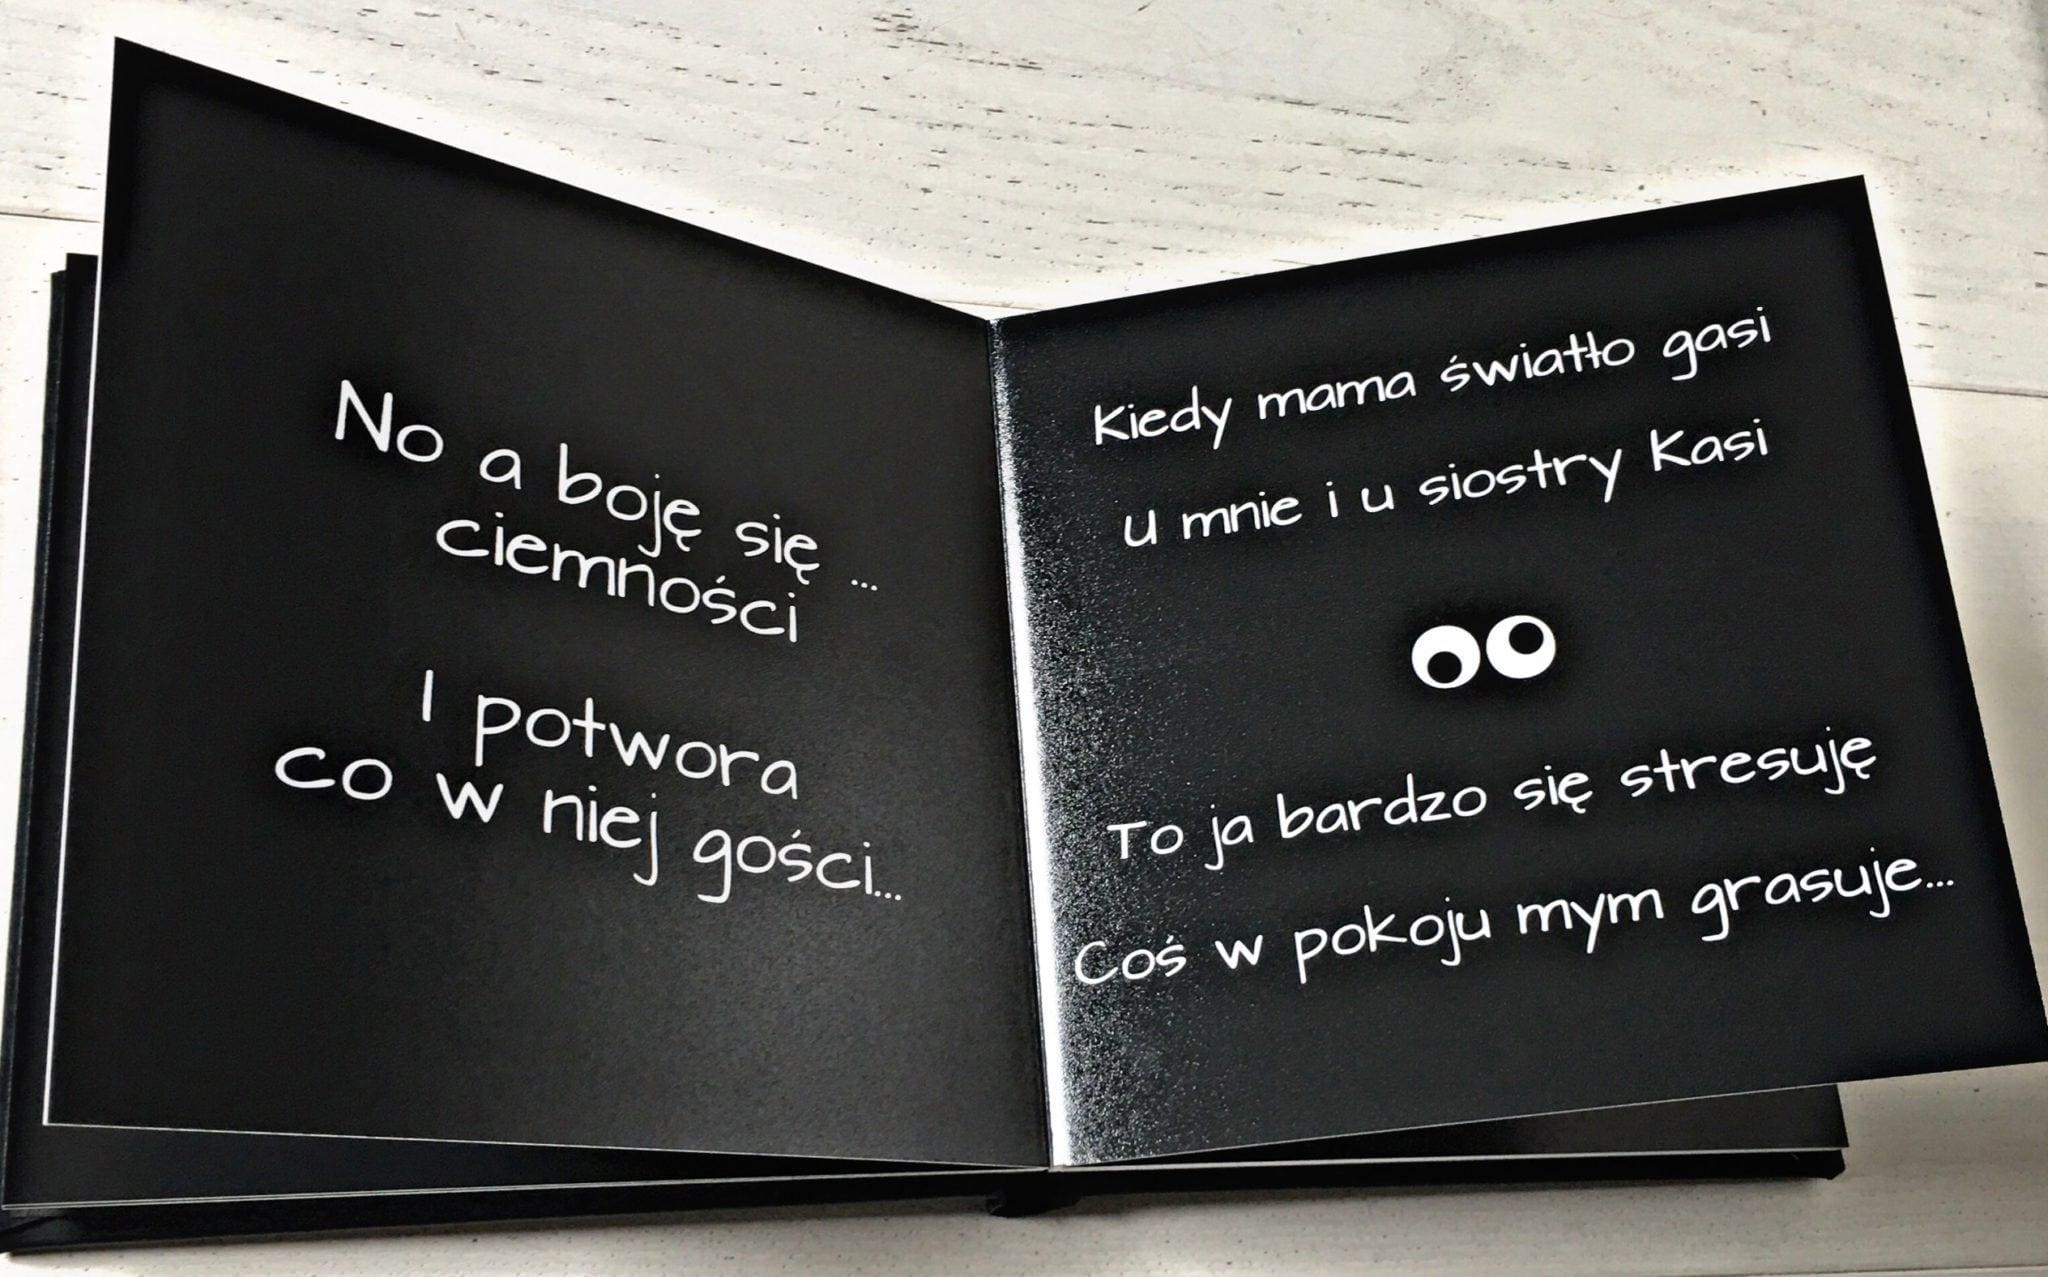 No a boję się ...
ciemności
I potwora
co w niej gości...
Kiedy mama światło gasi
U mnie i u siostry Kasi
To ja bardzo się stresuję
Coś w pokoju mym grasuje...